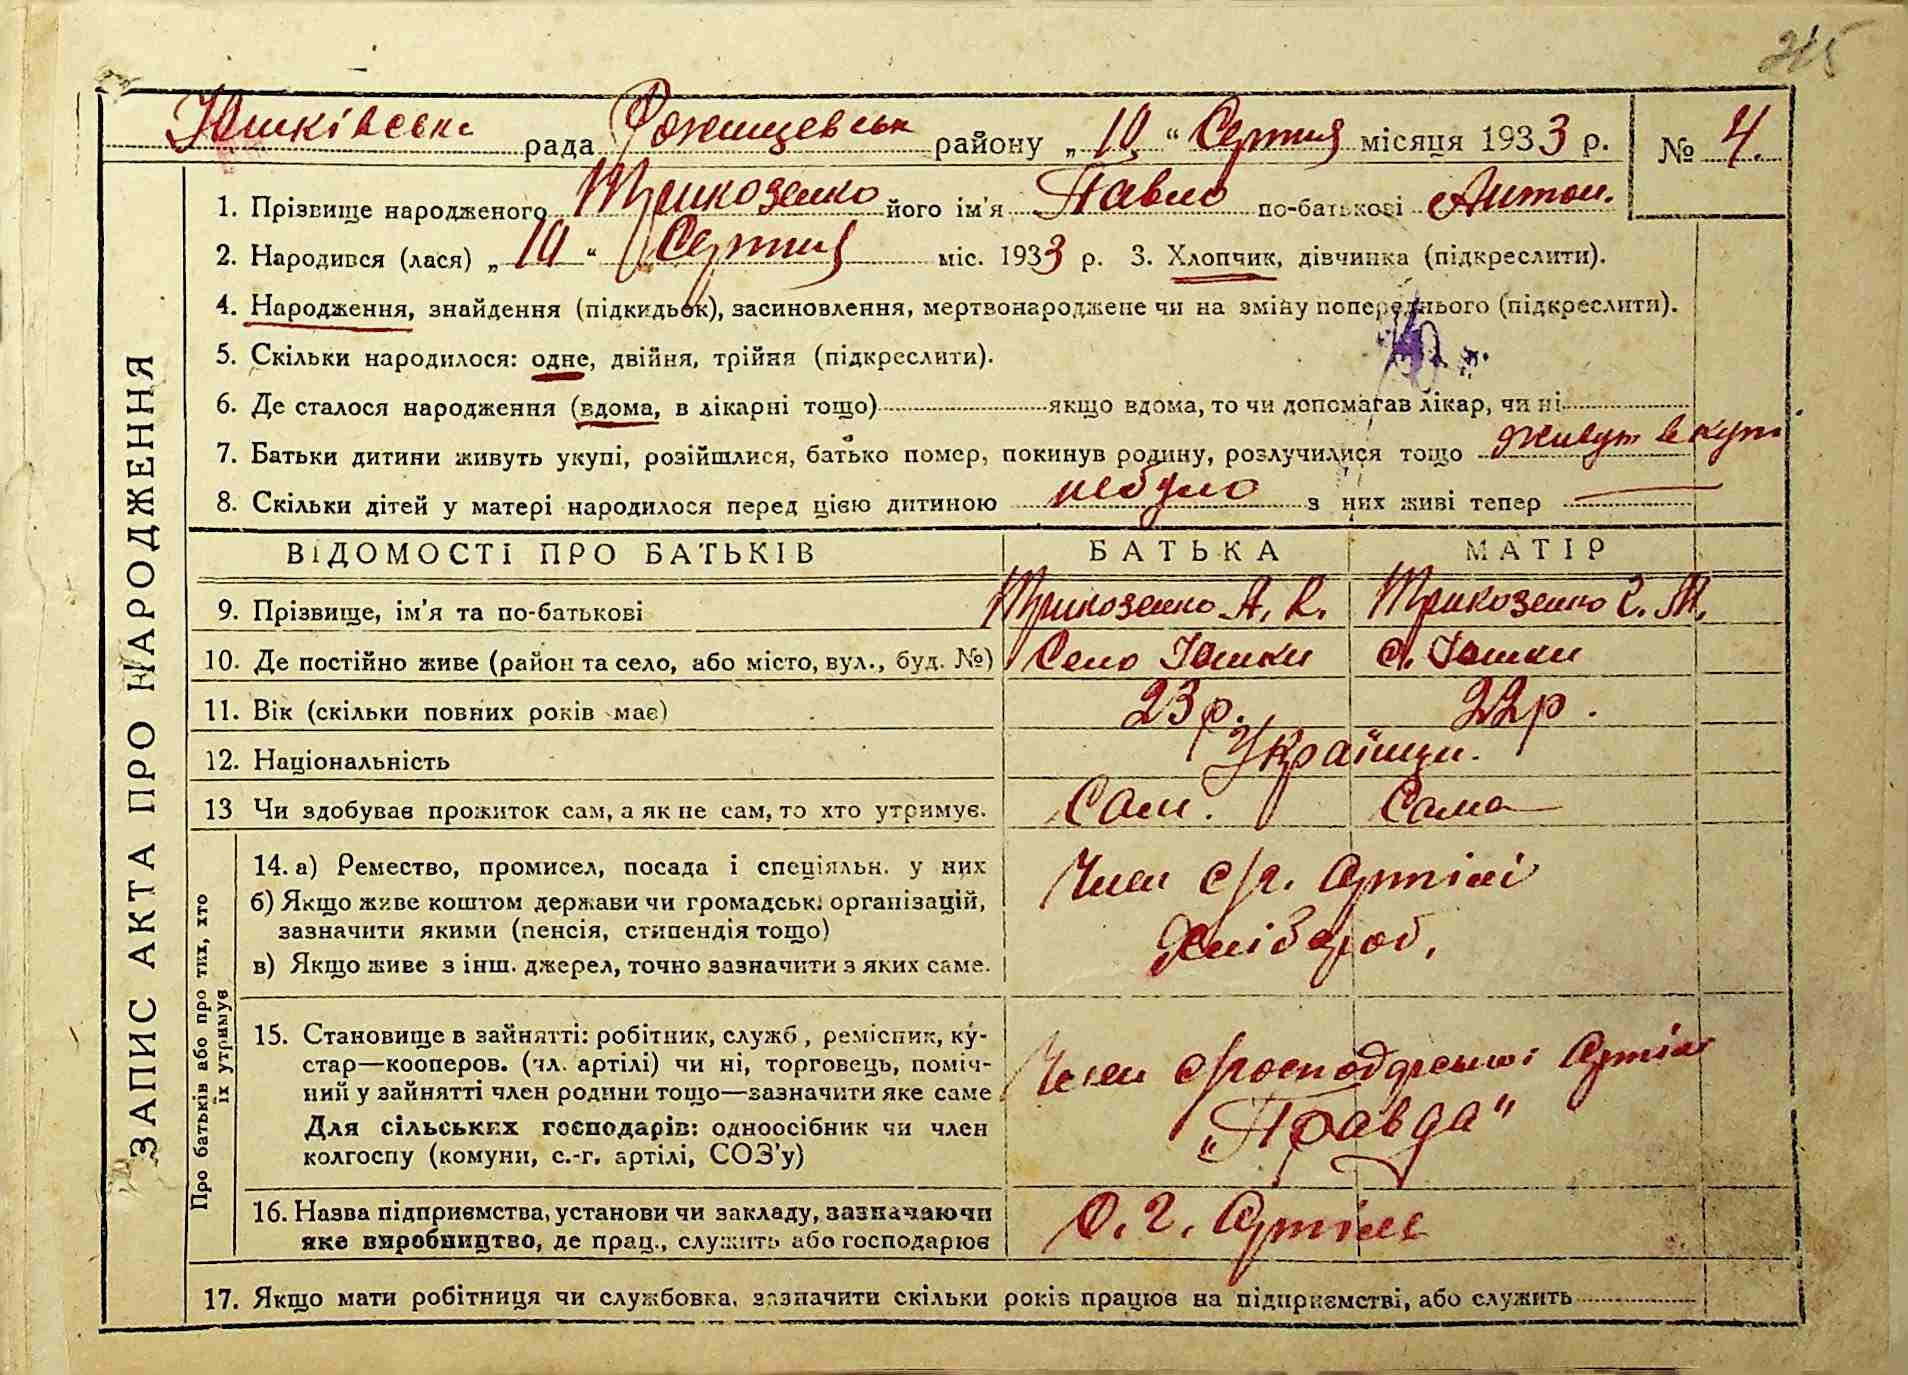 215
Юшківська рада Ржищевськ району „ 10 “ Серпня місяця 1933 р. № 4.
ЗАПИС АКТА ПРО НАРОДЖЕННЯ
1. Прізвище народженого Трикозенко його ім'я Павло по-батькові Антон.
2. Народився (лася) „ 10 “ Серпня міс. 1933 р. 3. Хлопчик, дівчинка (підкреслити).
4. Народження, знайдення (підкидьок), засиновлення, мертвонароджене чи на зміну попереднього (підкреслити).
5. Скільки народилося: одне, двійня, трійня (підкреслити).
6. Де сталося народження (вдома, в лікарні тощо) якщо вдома, то чи допомагав лікар, чи ні
7. Батьки дитини живуть укупі, розійшлися, батько помер, покинув родину, розлучилися тощо живут вкупі
8. Скільки дітей у матері народилося перед цією дитиною небуло з них живі тепер —
ВІДОМОСТІ ПРО БАТЬКІВ БАТЬКА МАТІР
9. Прізвище, ім'я та по-батькові Трикозенко А. К. Трикозенко Г. М.
10. Де постійно живе (район та село, або місто, вул., буд. №) Село Юшки с. Юшки
11. Вік (скільки повних років має) 23 р. 22 р.
12. Національність Українци.
13 Чи здобуває прожиток сам, а як не сам, то хто утримує. Сам. Сама
Про батьків або про тих, хто їх утримує
14. а) Ремество, промисел, посада і спеціяльн. у них Член с/г. Артілі
б) Якщо живе коштом держави чи громадськ. організацій,
зазначити якими (пенсія, стипендія тощо) Хлібороб.
в) Якщо живе з інш. джерел, точно зазначити з яких саме.
15. Становище в зайнятті: робітник, служб, ремісник, ку-
стар—кооперов. (чл. артілі) чи ні, торговець, поміч- Член с/господарської Артілі
ний у зайнятті член родини тощо—зазначити яке саме
Для сільських господарів: одноосібник чи член „Правда“
колгоспу (комуни, с.-г. артілі, СОЗ'у)
16. Назва підприємства, установи чи закладу, зазначаючи С. Г. Артіль
яке виробництво, де прац., служить або господарює
17. Якщо мати робітниця чи службовка, зазначити скільки років працює на підприємстві, або служить